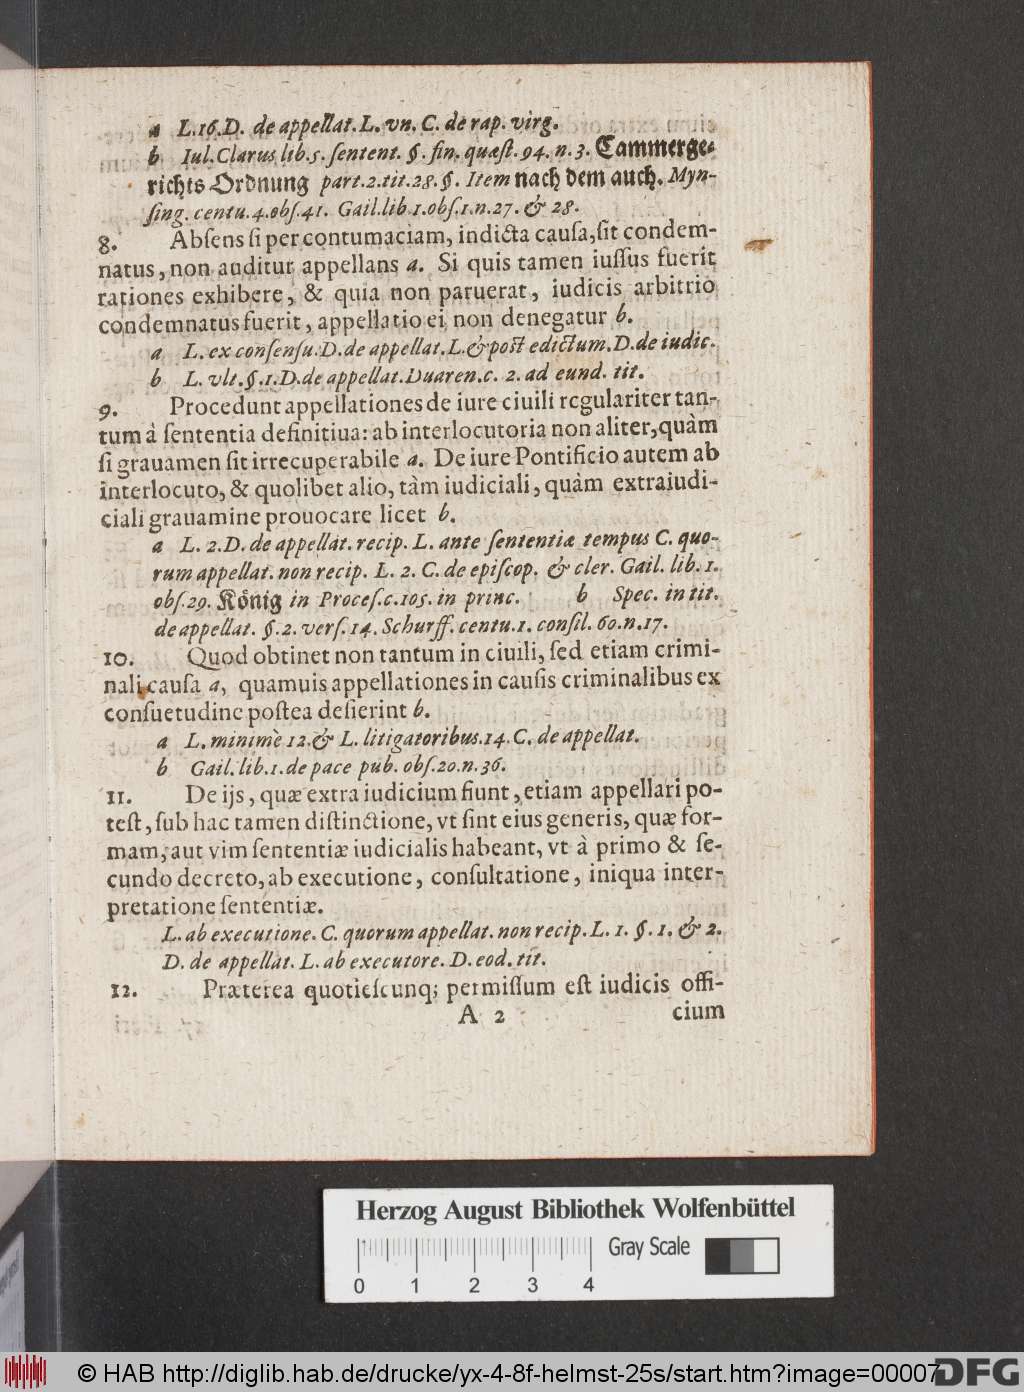 a L.16.D. de appellat. L. vn. C. de rap. virg.
b Iul. Clarus lib.5. ſentent. §. fin. quæſt. 94. n. 3. Cammerge-
richts Ordnung part.2. tit. 28. §. Item nach dem auch. Myn-
ſing. centu. 4. obſ. 41. Gail. lib. 1. obſ. 1. n. 27. & 28.
8. Abſens ſi per contumaciam, indicta cauſa, ſit condem-
natus, non auditur appellans a. Si quis tamen iuſſus fuerit
rationes exhibere, & quia non paruerat, iudicis arbitrio
condemnatus fuerit, appellatio ei non denegatur b.
a L. ex conſenſu. D. de appellat. L. & poſt edictum. D. de iudic.
b L. vlt. §. 1. D. de appellat. Duaren. c. 2. ad eund. tit.
9. Procedunt appellationes de iure ciuili regulariter tan-
tum à ſententia definitiua: ab interlocutoria non aliter, quàm
ſi grauamen ſit irrecuperabile a. De iure Pontificio autem ab
interlocuto, & quolibet alio, tàm iudiciali, quàm extraiudi-
ciali grauamine prouocare licet b.
a L. 2. D. de appellat. recip. L. ante ſententiæ tempus C. quo-
rum appellat. non recip. L. 2. C. de epiſcop. & cler. Gail. lib. 1.
obſ. 29. König in Proceſ. c. 105. in princ. b Spec. in tit.
de appellat. §. 2. verſ. 14. Schurff. centu. 1. conſil. 60. n. 17.
10. Quod obtinet non tantum in ciuili, ſed etiam crimi-
nali cauſa a, quamuis appellationes in cauſis criminalibus ex
conſuetudine poſtea deſierint b.
a L. minimè 12. & L. litigatoribus. 14. C. de appellat.
b Gail. lib. 1. de pace pub. obſ. 20. n. 36.
11. De ijs, quæ extra iudicium fiunt, etiam appellari po-
teſt, ſub hac tamen diſtinctione, vt ſint eius generis, quæ for-
mam, aut vim ſententiæ iudicialis habeant, vt à primo & ſe-
cundo decreto, ab executione, conſultatione, iniqua inter-
pretatione ſententiæ.
L. ab executione. C. quorum appellat. non recip. L. 1. §. 1. & 2.
D. de appellat. L. ab executore. D. eod. tit.
12. Præterea quotieſcunq; permiſſum eſt iudicis offi-
A 2 cium
Herzog August Bibliothek Wolfenbüttel
Gray Scale
0 1 2 3 4
© HAB http://diglib.hab.de/drucke/yx-4-8f-helmst-25s/start.htm?image=00007
DFG